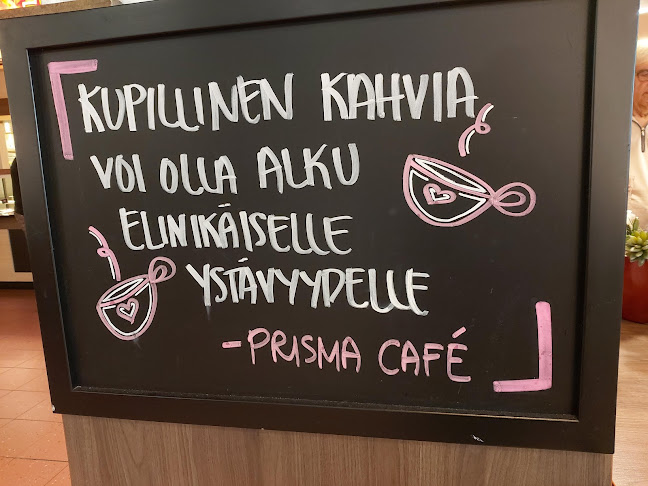 KUPILLINEN KAHVIA
VOI OLLA ALKU
ELINIKÄISELLE
YSTÄVYYDELLE
- PRISMA CAFÉ